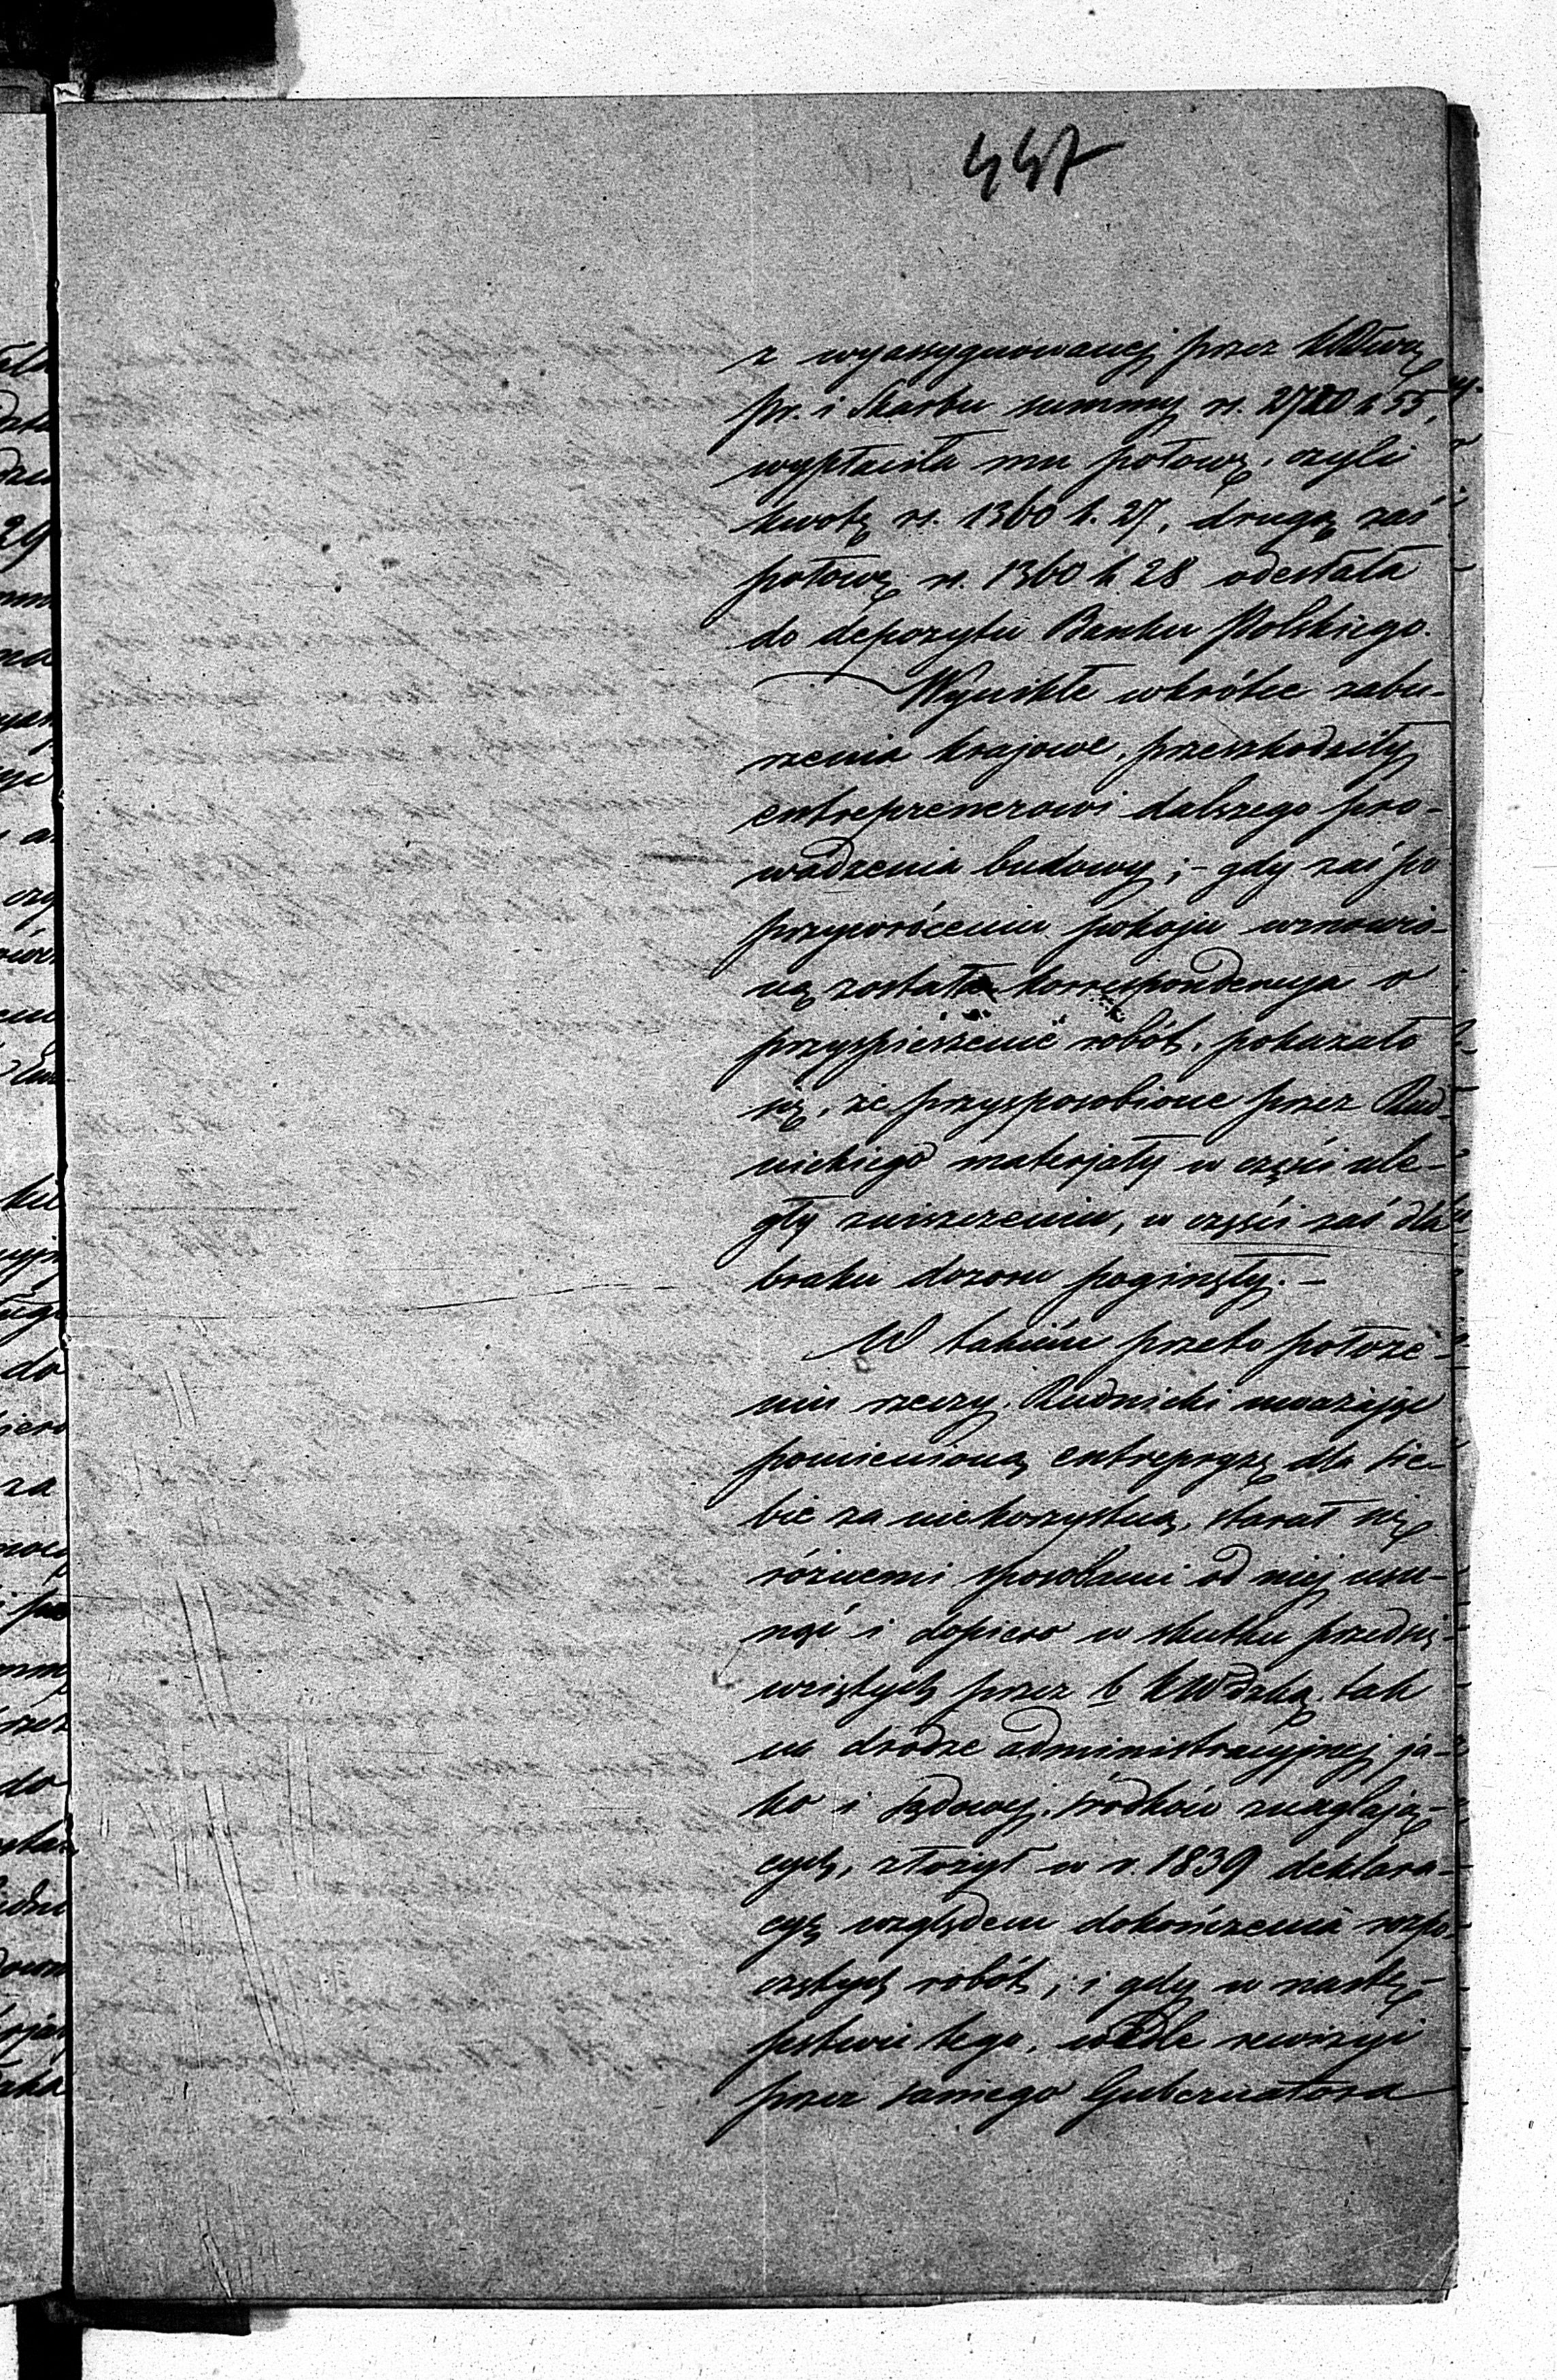 447
z wyassygnowanej przez KRSwą
pr. i Skarbu summy rs. 2720 k 55,
wypłaciła mu połowę, czyli
kwotę rs. 1360 k. 27, drugą zaś
połowę rs. 1360 k 28 odesłała
do depozytu Banku Polskiego.
Wynikłe wkrótce zabu-
rzenia krajowe, przeszkodziły
entreprenerowi dalszego pro-
wadzenia budowy; - gdy zaś po
przywróceniu pokoju wznowio-
ną została korrespondencya o
przyspieszenie robót, pokazało
się, że przysposobione przez Rud-
nickiego materjały w części ule-
gły zniszczeniu, w części zaś dla
braku dozoru poginęły. -
W takiém przeto położe-
niu rzeczy, Rudnicki uważając
pomienioną entrepryzę dla sie-
bie za niekorzystną, starał się
różnemi sposobami od niej usu-
nąć i dopiero w skutku przedsię-
wziętych przez b KWdzką, tak
na drodze administracyjnej ja-
ko i sądowej, środków znaglają-
cych, złożył w r. 1839 deklara-
cyę względem dokończenia rozpo-
czętych robót; i gdy w nastę-
pstwie tego, wedle rewizyi
przez samego Gubernatora